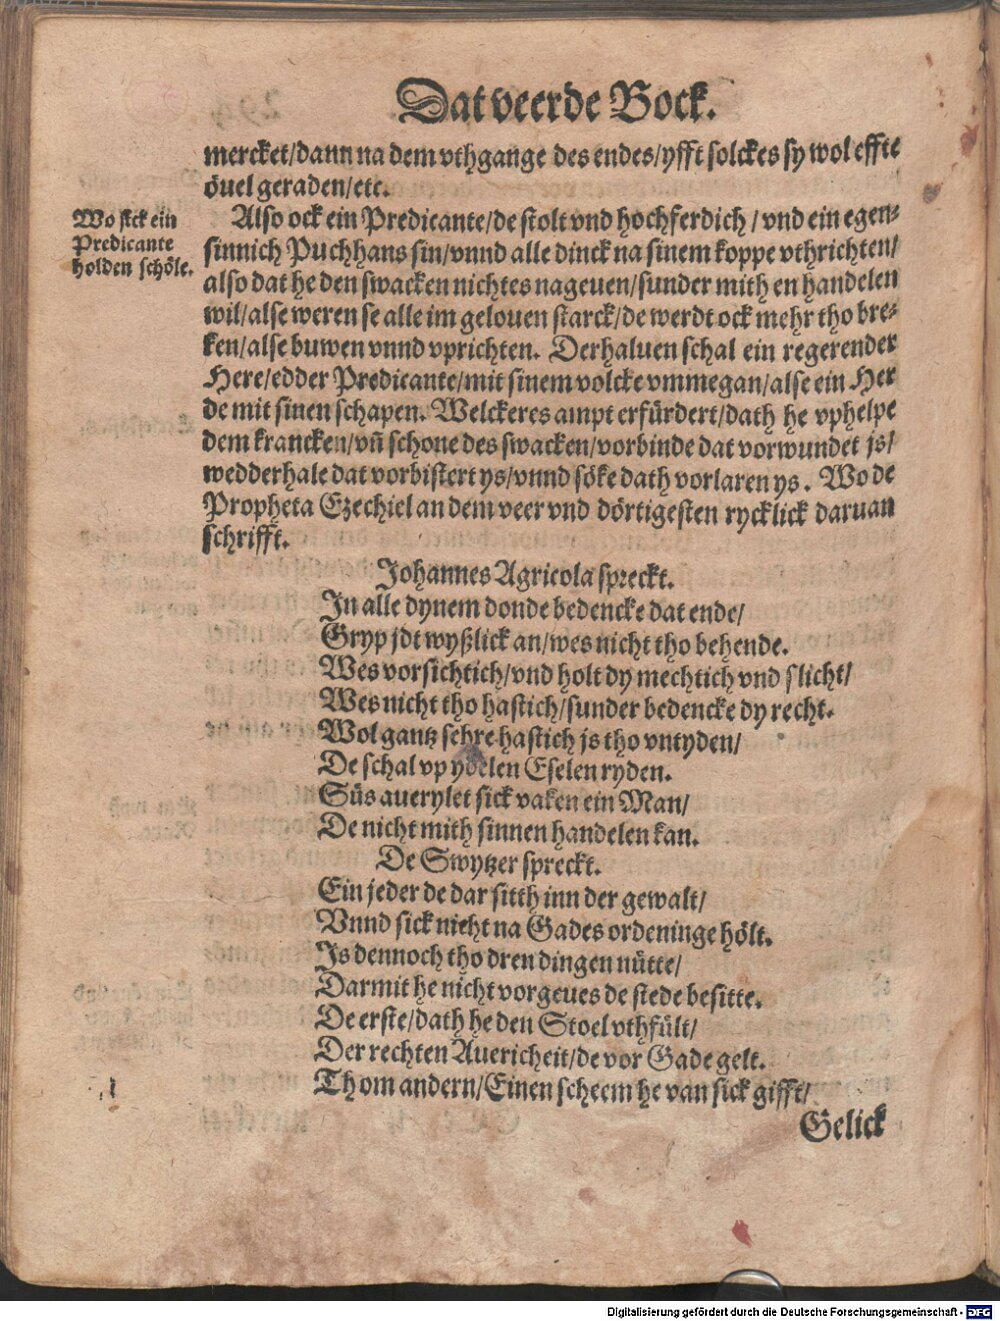 Dat veerde Bock.
mercket/dann na dem vthgange des endes/yfft solckes sy wol effte
övel geraden/etc.
Wo sick ein
Predicante
holden schöle.
Also ock ein Predicante/de stolt vnd hochferdich/vnd ein egen⸗
sinnich Puchhans sin/vnnd alle dinck na sinem koppe vthrichten/
also dat he den swacken nichtes nageuen/sunder mith en handelen
wil/alse weren se alle im gelouen starck/de werdt ock mehr tho bre⸗
ken/alse buwen vnnd vprichten. Derhaluen schal ein regerender
Here/edder Predicante/mit sinem volcke vmmegan/alse ein Her
de mit sinen schapen. Welckeres ampt erfürdert/dath he vphelpe
dem krancken/vñ schone des swacken/vorbinde dat vorwundet js/
wedderhale dat vorbistert ys/vnnd söke dath vorlaren ys. Wo de
Propheta Ezechiel an dem veer vnd dörtigesten rycklick daruan
schrifft.
Johannes Agricola spreckt.
In alle dynem donde bedencke dat ende/
Gryp jdt wyßlick an/wes nicht tho behende.
Wes vorsichtich/vnd holt dy mechtich vnd slicht/
Wes nicht tho hastich/sunder bedencke dy recht.
Wol gantz sehre hastich js tho vntyden/
De schal vp ydelen Eselen ryden.
Süs auerylet sick vaken ein Man/
De nicht mith sinnen handelen kan.
De Swytzer spreckt.
Ein jeder de dar sitth inn der gewalt/
Vnnd sick nicht na Gades ordeninge hölt.
Is dennoch tho dren dingen nütte/
Darmit he nicht vorgeues de stede besitte.
De erste/dath he den Stoel vthfült/
Der rechten Auericheit/de vor Gade gelt.
Thom andern/Einen scheem he van sick gifft/
Gelick
Digitalisierung gefördert durch die Deutsche Forschungsgemeinschaft - DFG